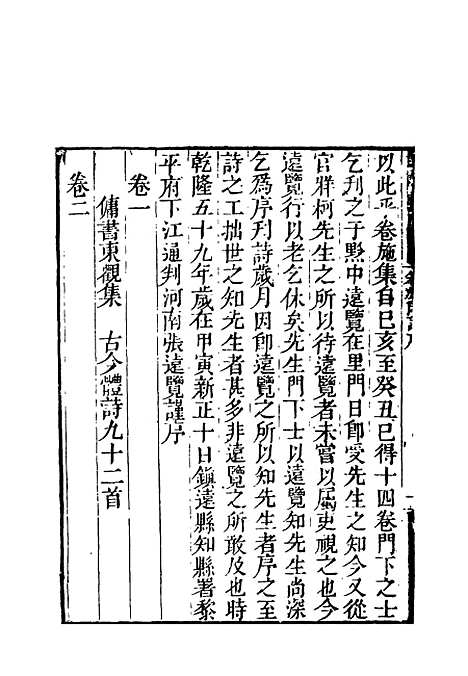 以此乎卷施集自己亥至癸丑已得十四卷門下之士
乞刋之于黔中遠覽在里門日卽受先生之知今又從
官牂柯先生之所以待遠覽者未嘗以屬吏視之也今
遠覽行以老乞休矣先生門下士以遠覽知先生尚深
乞爲序刋詩歲月因卽遠覽之所以知先生者序之至
詩之工拙世之知先生者甚多非遠覽之所敢及也時
乾隆五十九年歲在甲寅新正十日鎭遠縣知縣署黎
平府下江通判河南張遠覽謹序
卷一
傭書東觀集　古今體詩九十二首
卷二